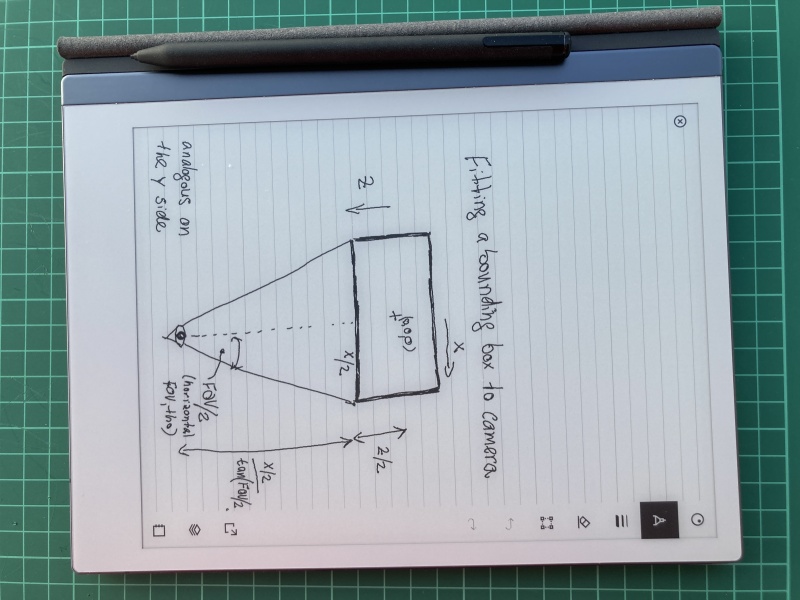 Fitting a bounding box to camera
x
z
(0,0,0)
x/2
z/2
FOV/2
(horizontal
FOV, tho)
x/2
tan(FOV/2
analogous on
the y side
A